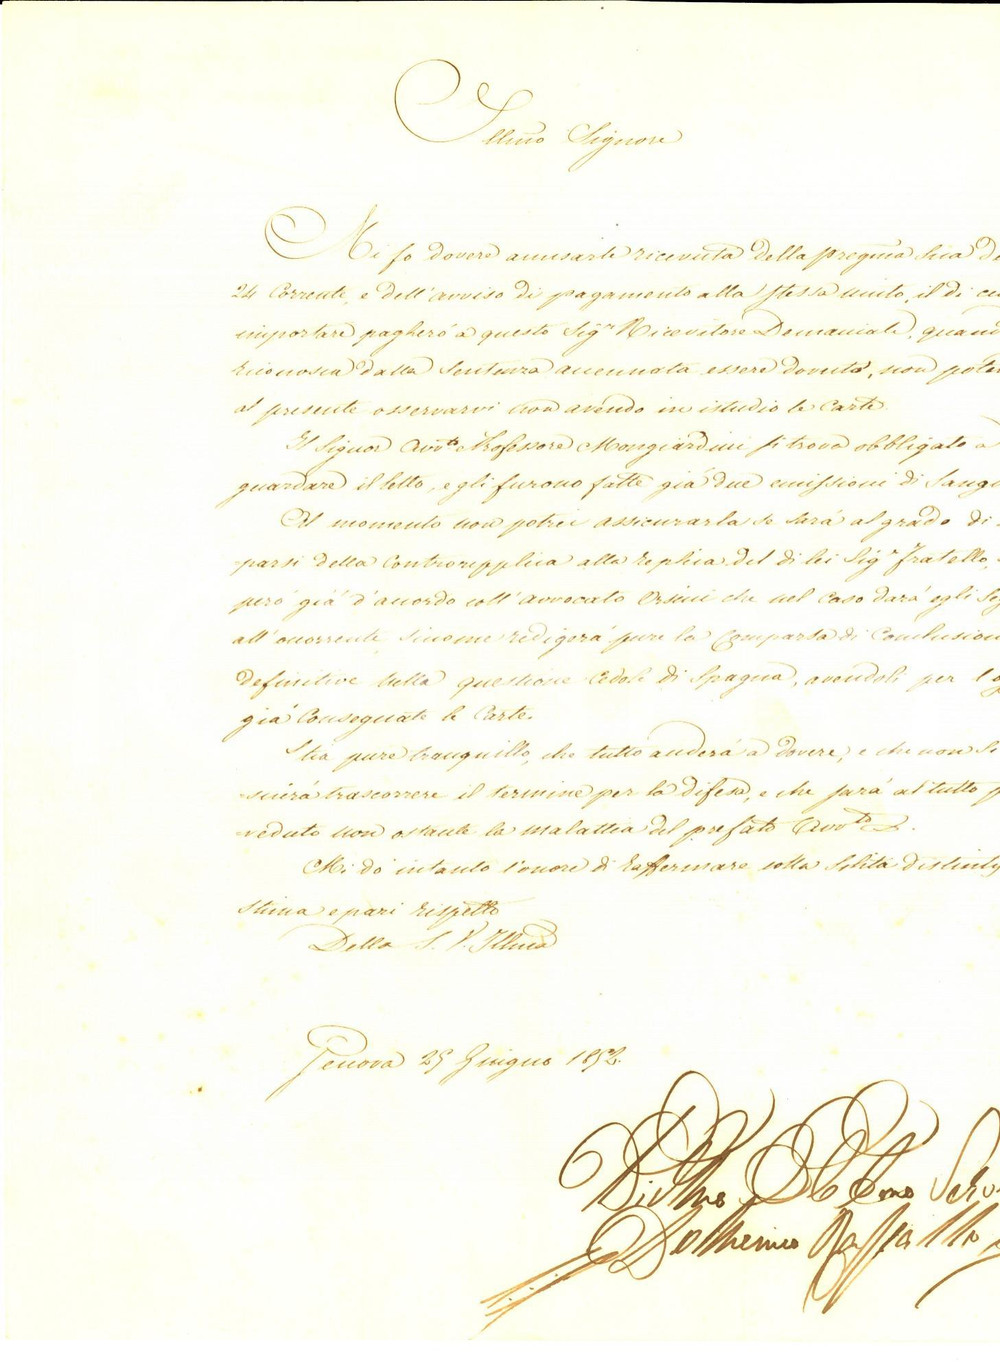 Illmo Signore
Mi fo dovere accusarle ricevuta della pregma sua de
24 Corrente, e dell'avviso di pagamento alla stessa unito, il di cui
importare pagherò a questo Sigr Ricevitore Demaniale, quand
riconosca dalla Sentenza accennata essere dovuta, non poten
al presente osservarvi non avendo in istudio le Carte.
Il Signor Avvto Professore Mongiardini si trova obbligato a
guardare il letto, e gli furono fatte già due emissioni di Sangu
Al momento non potrei assicurarla se sarà al grado di
parsi della Controreplica alla replica del di lei Sigr Fratello,
però già d'accordo coll'avvocato Orsini che nel caso darà egli
all'occorrente, siccome redigerà pure la Comparsa di Conclusion
definitive sulla questione Cedole di Spagna, avendoli per
già Consegnate le Carte.
Stia pure tranquillo, che tutto anderà a dovere, e che non se
scierà trascorrere il termine per la difesa, e che sarà al tutto p
veduto non ostante la malattia del prefato Avvto
Mi do intanto l'onore di raffermare colla solita distinti
stima e pari rispetto
Della S. V. Illma
Genova 25 Giugno 1852.
Div Obbmo Servo
Domenico Raffaello